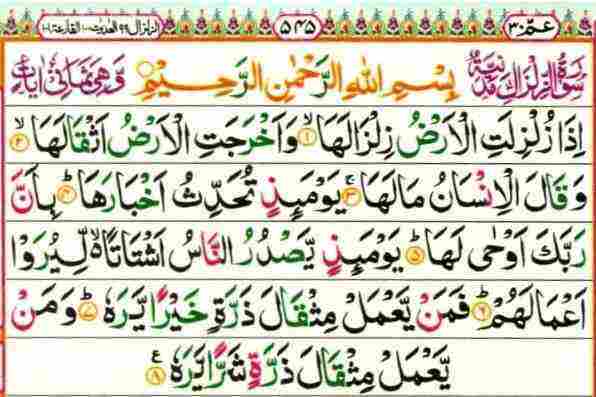 عمّ ٣٠ ۵۴۵ الزلزال ٩٩ العٰدیٰت ١٠٠ القارعة ١٠١
سُوْرَةُ الزِّلْزَالِ مَدَنِيَّةٌ بِسْمِ اللهِ الرَّحْمٰنِ الرَّحِيْمِ وَهِيَ ثَمَانِيْ اٰيَاتٍ
اِذَا زُلْزِلَتِ الْاَرْضُ زِلْزَالَهَا ۙ﴿۱﴾ وَاَخْرَجَتِ الْاَرْضُ اَثْقَالَهَا ۙ﴿۲﴾
وَقَالَ الْاِنْسَانُ مَالَهَا ۚ﴿۳﴾ يَوْمَىِٕذٍ تُحَدِّثُ اَخْبَارَهَا ۙ﴿۴﴾ بِاَنَّ
رَبَّكَ اَوْحٰى لَهَا ؕ﴿۵﴾ يَوْمَىِٕذٍ يَّصْدُرُ النَّاسُ اَشْتَاتًا ۙ لِّيُرَوْا
اَعْمَالَهُمْ ؕ﴿۶﴾ فَمَنْ يَّعْمَلْ مِثْقَالَ ذَرَّةٍ خَيْرًا يَّرَهٗ ؕ﴿۷﴾ وَمَنْ
يَّعْمَلْ مِثْقَالَ ذَرَّةٍ شَرًّا يَّرَهٗ ﴿۸﴾ ع